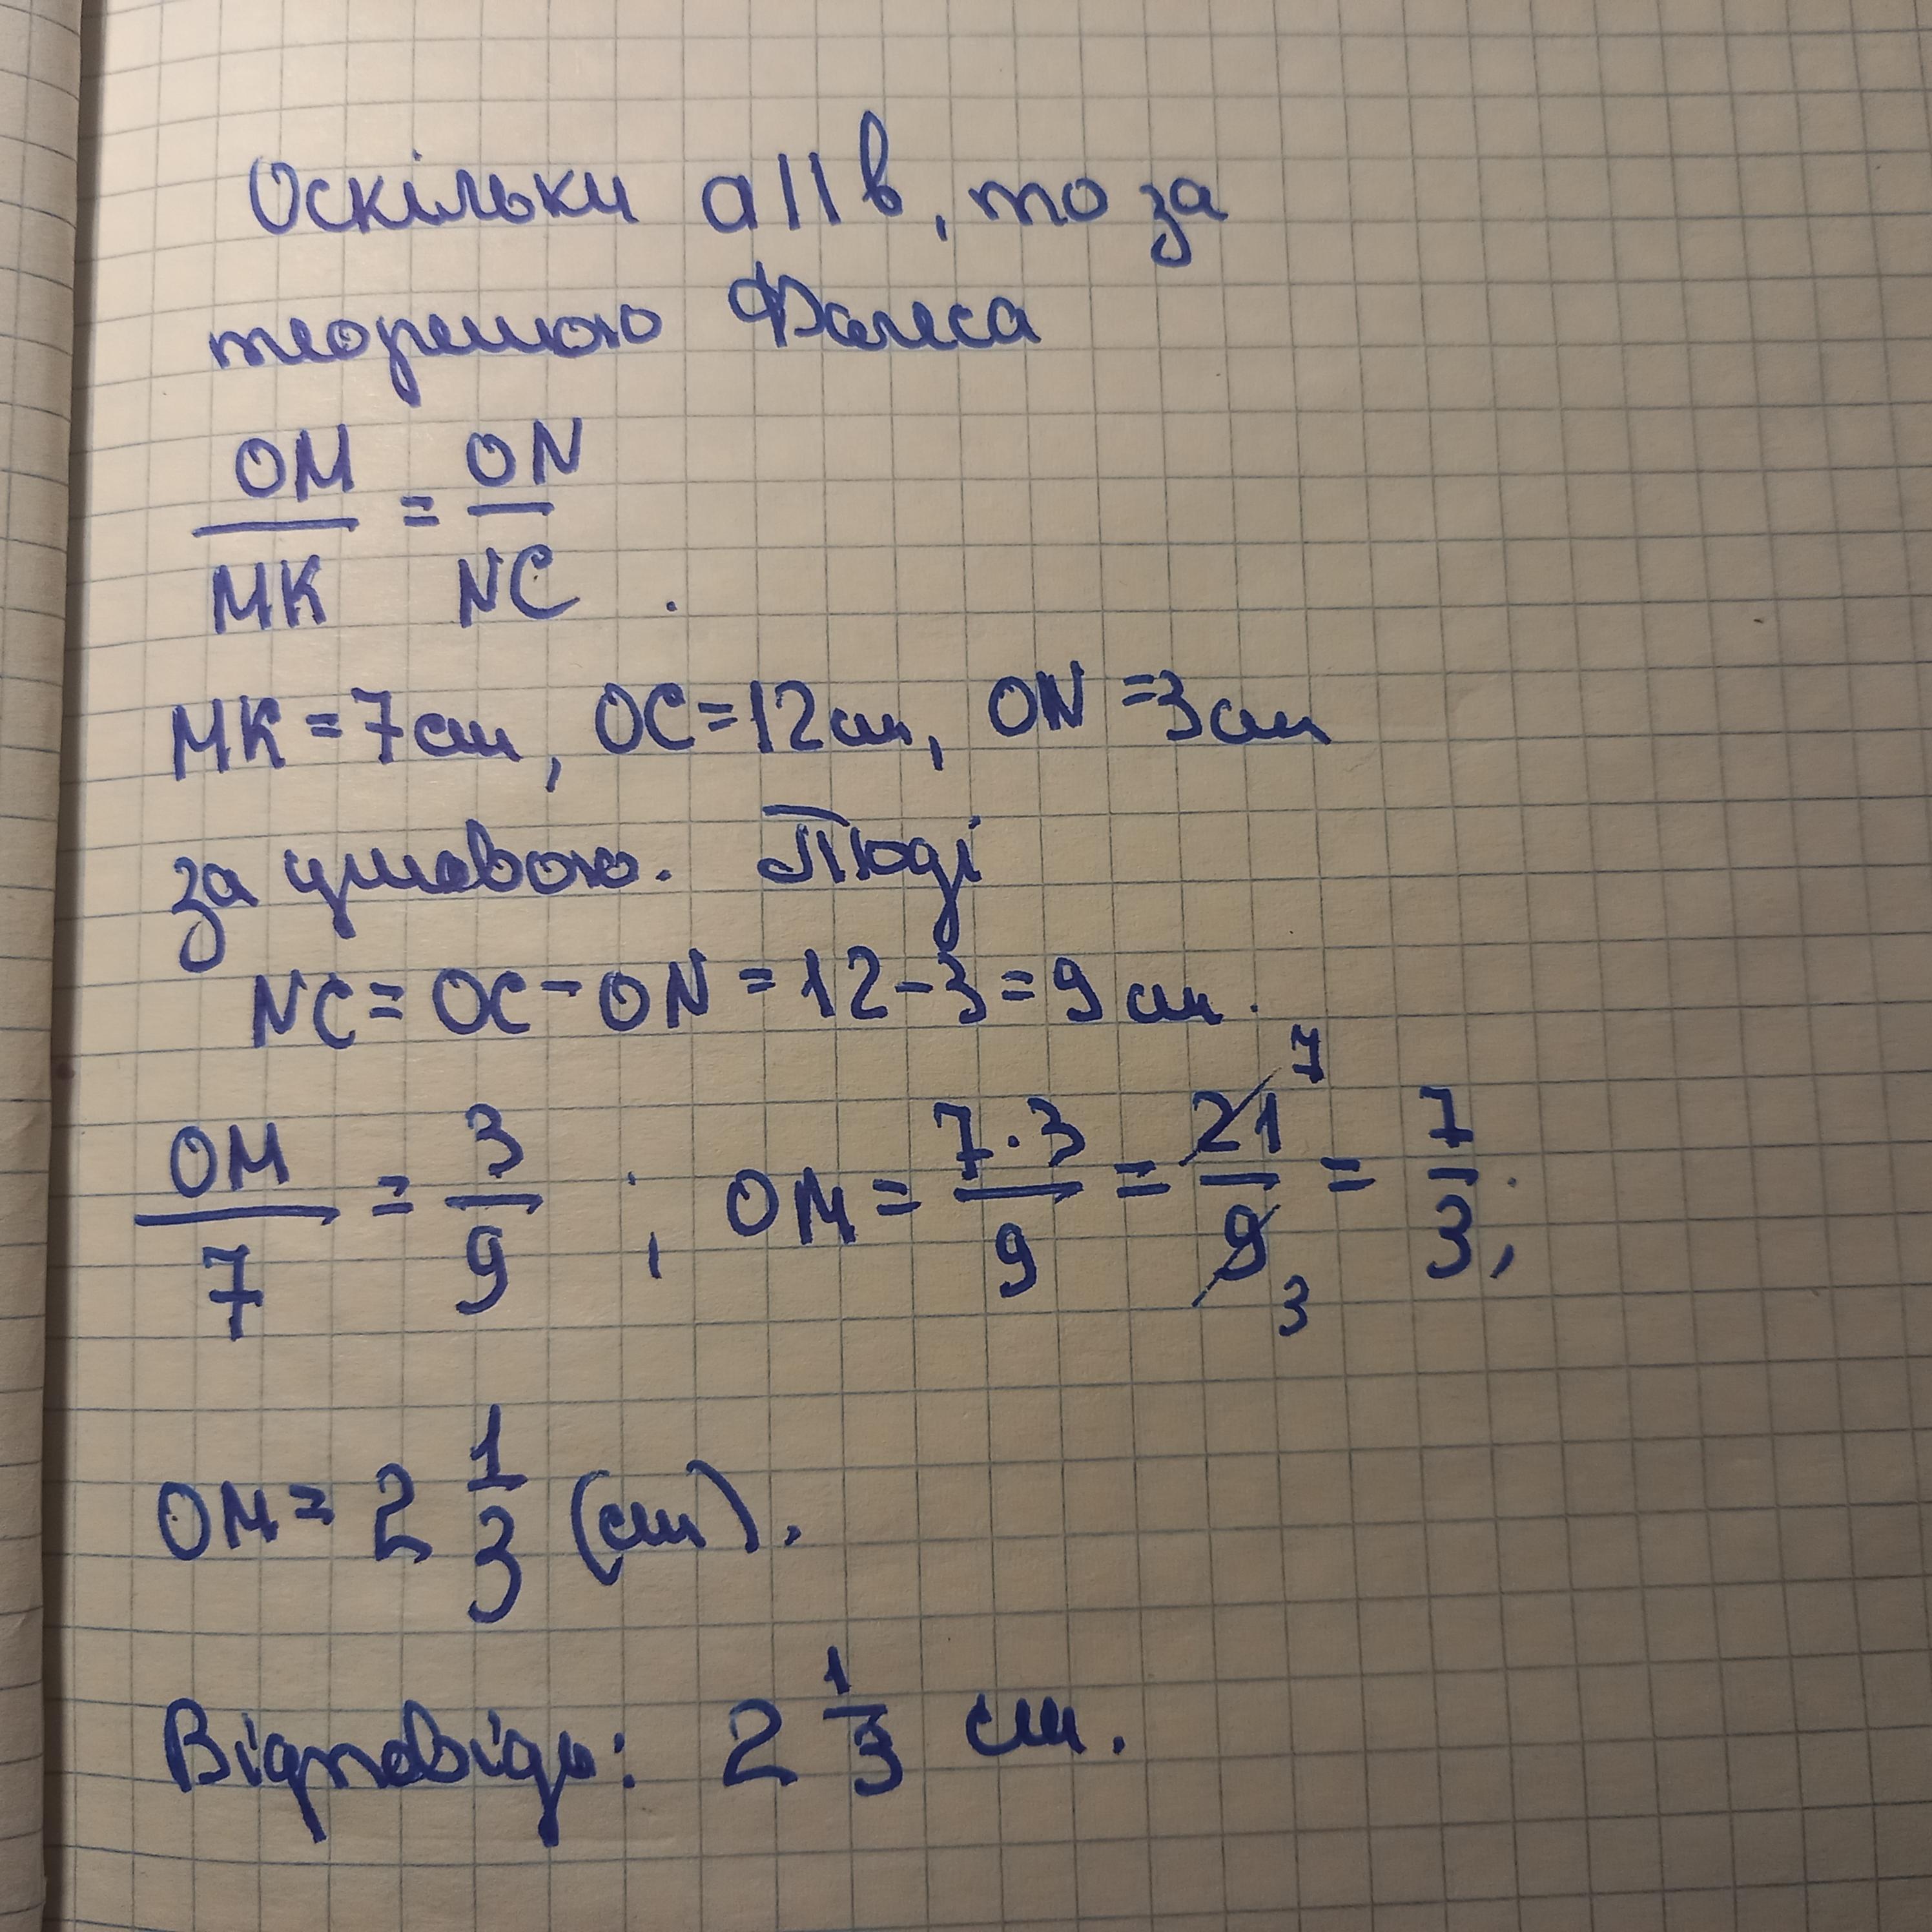 Оскільки a || b, то за
теоремою Фалеса
OM/MK = ON/NC .
MK = 7см, OC = 12см, ON = 3см
за умовою. Тоді
NC = OC - ON = 12 - 3 = 9 см.
OM/7 = 3/9 ; OM = 7·3/9 = 21/9 7 3 = 7/3;
OM = 2 1/3 (см).
Відповідь: 2 1/3 см.